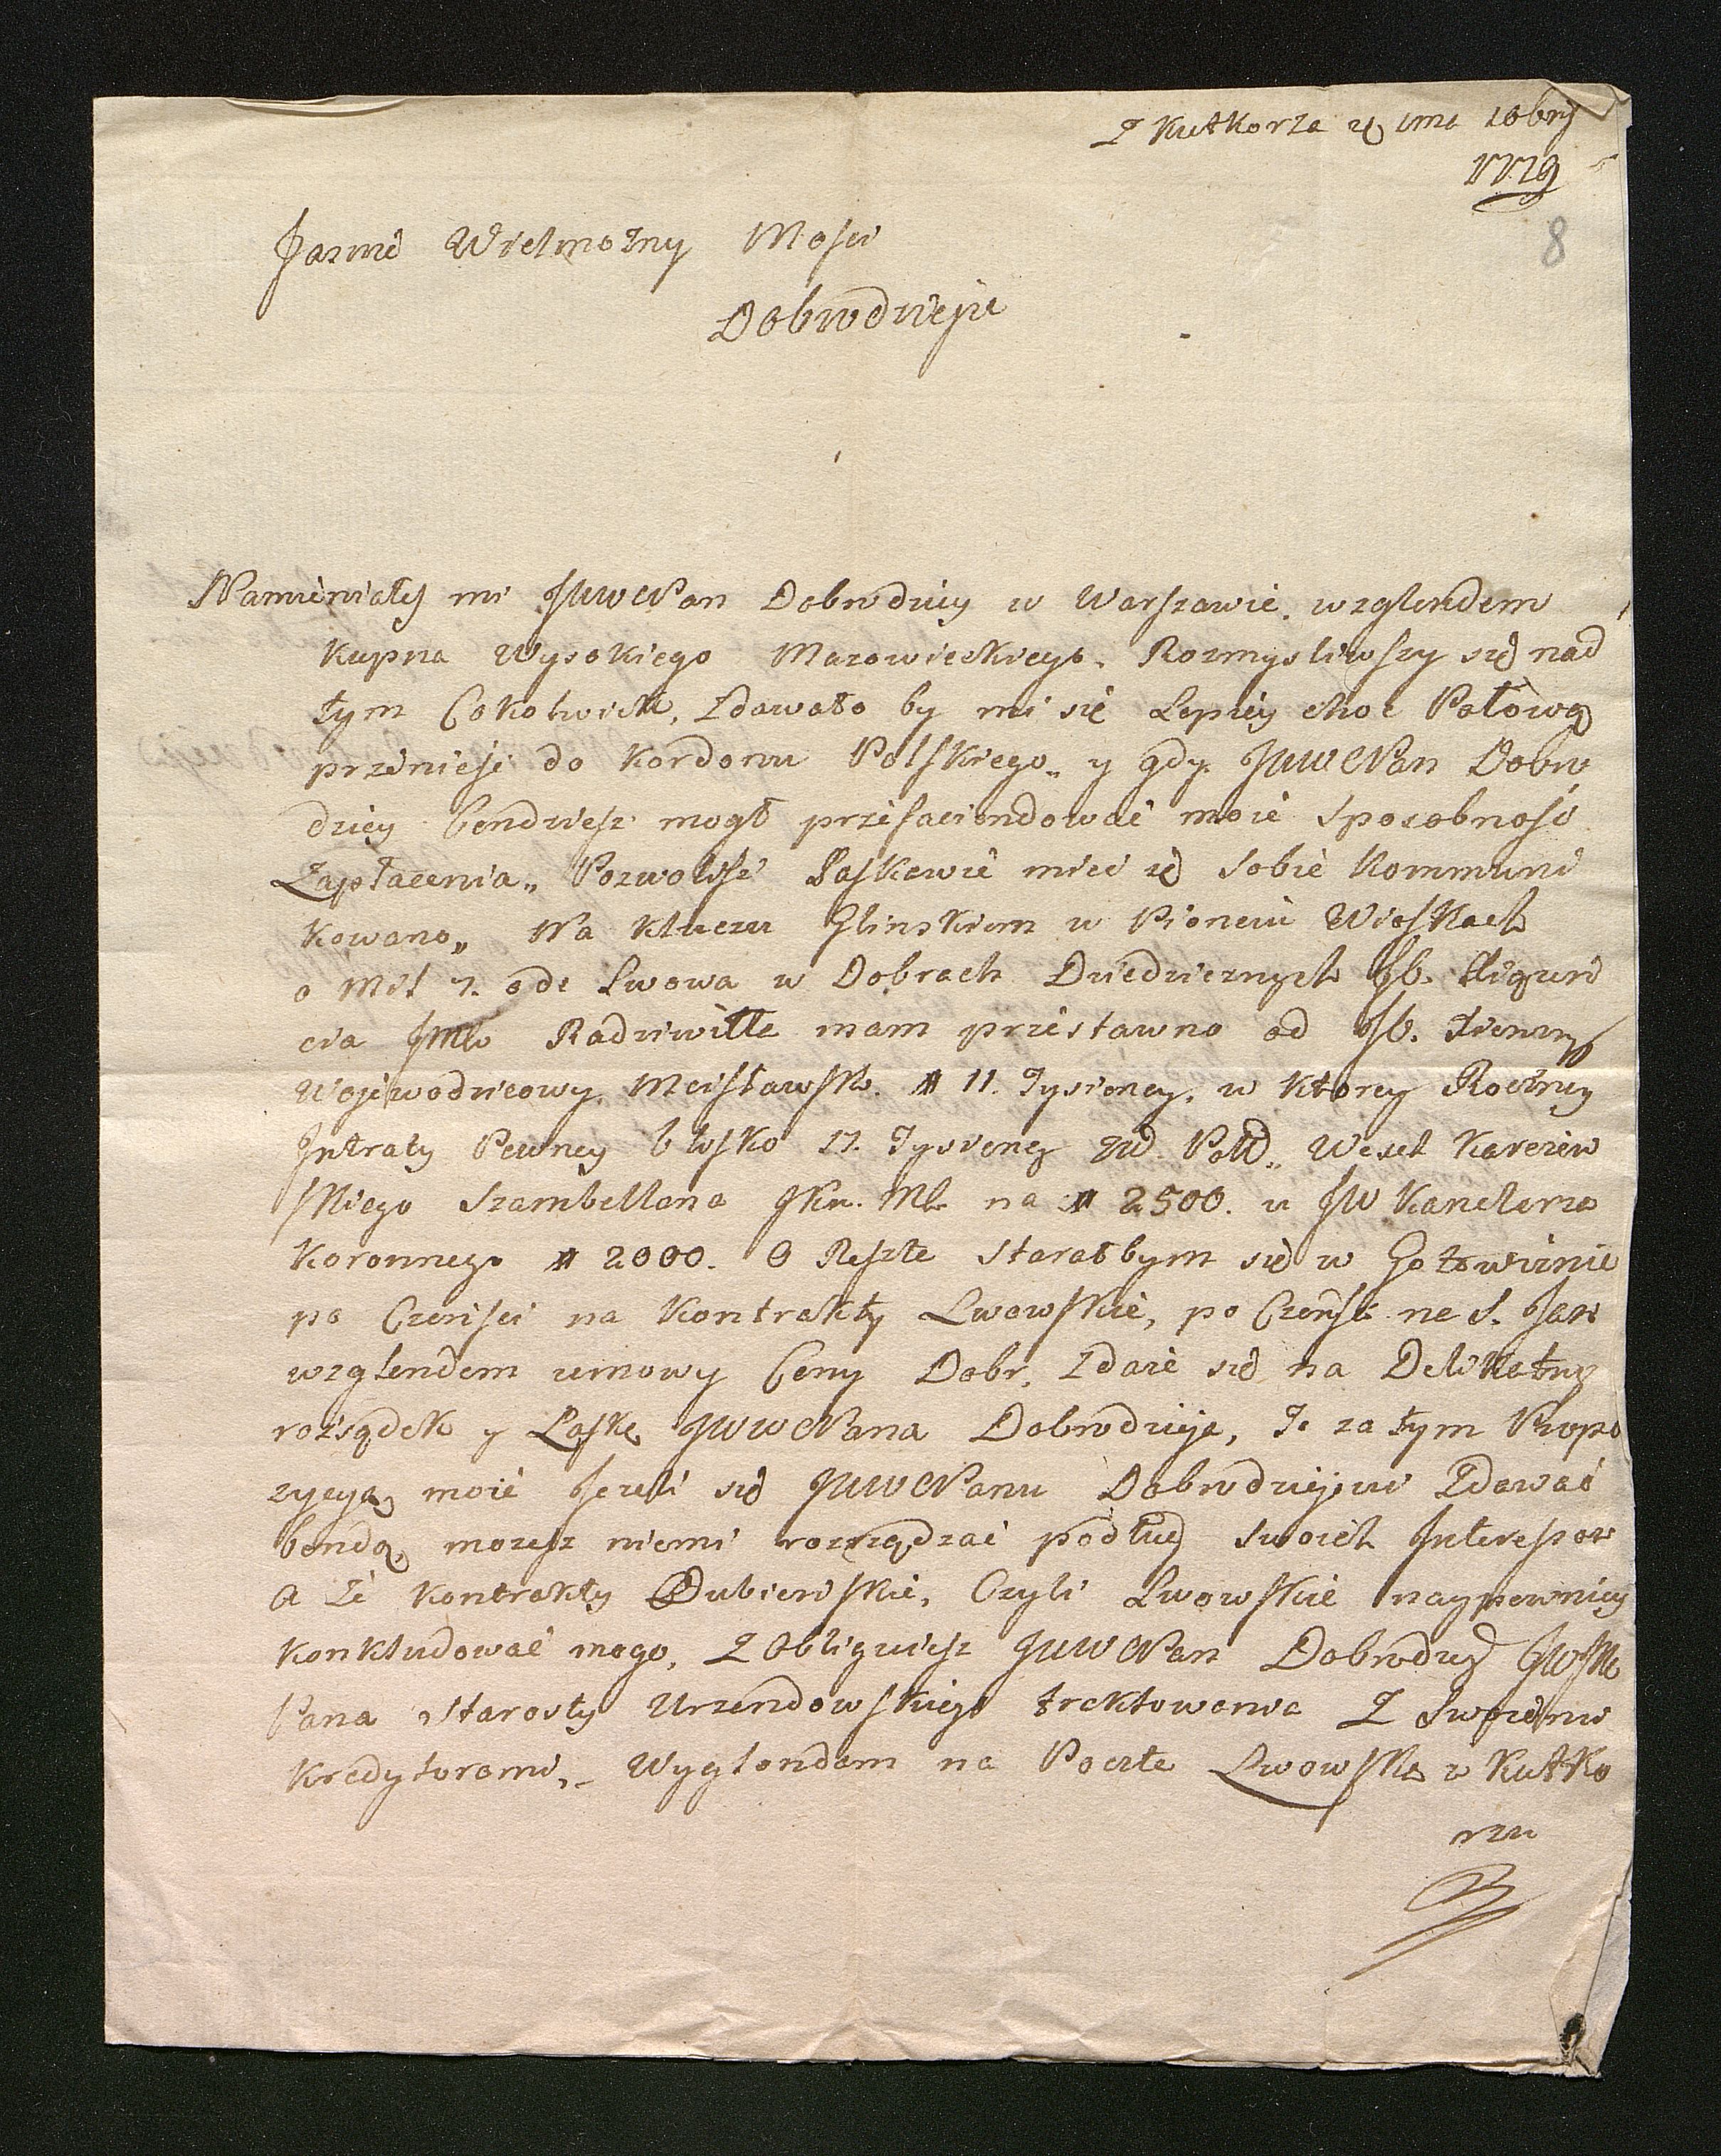 Z Kutkorza d 1ma 10bris
1779
8
Jasnie Wielmożny Mosci
Dobrodzieju
Namieniałeś mi JWWPan Dobrodziey w Warszawie, wzglendem
kupna Wysokiego Mazowieckiego. Rozmysliwszy się nad
tym Cokolwiek, Zdawało by mi się Lepiey choc Połowę
przenieść do Kordonu Polskiego„ y gdy JWWPan Dobro
dziey bendziesz mogł moie sposobnosc
Zapłacenia„ Pozwolisz Łaskawie miec ią sobie Kommuni
kowano„ Na kluczu Glinskim w Pionciu Wioskach
o Mil 7. ode Lwowa w Dobrach Dziedzicznych
cia Radziwiłła mam od
Wojewodzicowy Mcisławsk. # 11. Tysioncy, w ktorey Roczney
Intraty Pewney blisko 17. Tysiency Pol„ Wexel Karczew
skiego Szambellana JKr. Mci na # 2500. u JW Kanclerza
Koronnego # 2000. O Reszte starałbym się w Gotowiznie
po Czensci na Kontrakty Lwowskie, po Czensci na S. Jan
wzglendem umowy Ceny Dobr, Zdaie się na Delikatny
rozsądek y Łaskę JWWPana Dobrodzieja, Te za tym Propo
zycyą moie Jezeli się JWWPanu Dobrodziejowi Zdawać
bendą, mozesz niemi rozrządzać podług swoich Interessow
A że kontrakty Dubienskie, Czyli Lwowskie naypewniey
konkludować mogo, Zobliguiesz JWWPan Dobrodziey JWJM
Pana Starosty Urzendowskiego traktowania Z swoiemi
kredytorami„ Wyglondam na Poczte Lwowską w Kutko
rzu